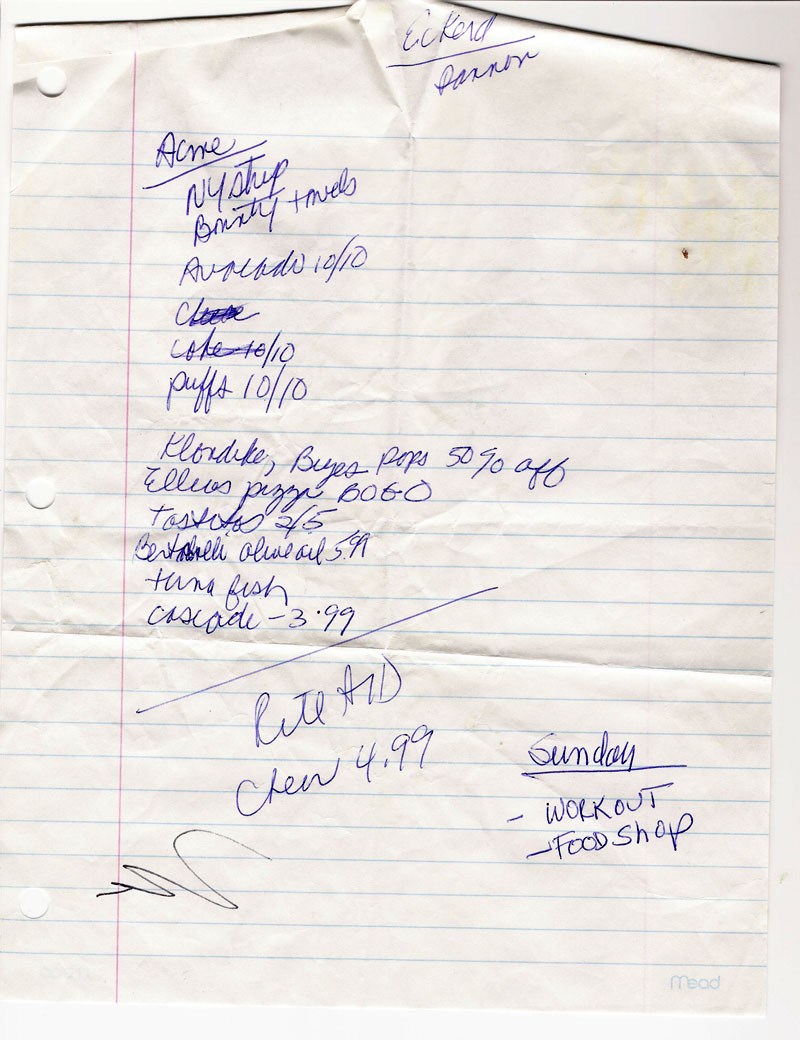 Eckerd
Dannon
Acme
NY strip
Bounty towels
Avocado 10/10
Coke 10/10
puffs 10/10
Klondike, Breyers pops 50% off
Ellios pizza BOGO
Tostitos 2/5
Bertolli olive oil 5.99
tuna fish
cascade - 3.99
Rite AID
Cheer 4.99
Sunday
- WORKOUT
- FOOD Shop
Mead